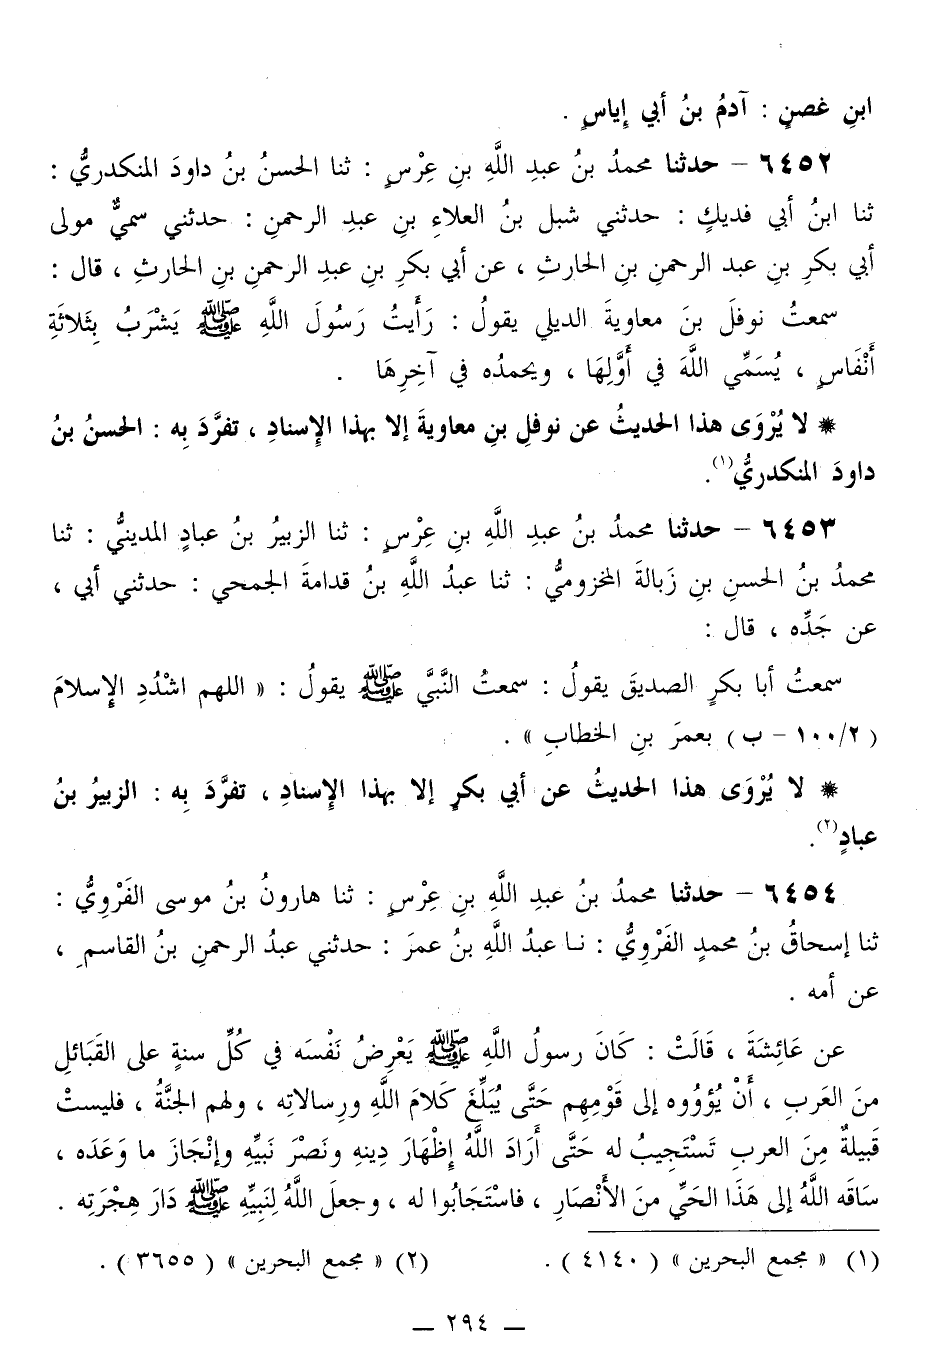 ابنِ غصنٍ : آدمُ بنُ أبي إياسٍ .
٦٤٥٢ – حدثنا محمدُ بنُ عبدِ اللَّهِ بنِ عِرْسٍ : ثنا الحسنُ بنُ داودَ المنكدريُّ :
ثنا ابنُ أبي فديكٍ : حدثني شبل بنُ العلاءِ بنِ عبدِ الرحمنِ : حدثني سميٌّ مولى
أبي بكرِ بنِ عبد الرحمنِ بنِ الحارثِ ، عن أبي بكرِ بنِ عبدِ الرحمنِ بنِ الحارثِ ، قال :
سمعتُ نوفلَ بنَ معاويةَ الديلي يقولُ : رَأَيتُ رَسُولَ اللَّهِ ﷺ يَشْرَبُ بِثَلاثَةِ
أَنْفَاسٍ ، يُسَمِّي اللَّهَ في أَوَّلِهَا ، ويحمدُه في آخِرِهَا .
* لا يُرْوَى هذا الحديثُ عن نوفلِ بنِ معاويةَ إلا بهذا الإسنادِ ، تفرَّدَ بِه : الحسنُ بنُ
داودَ المنكدريُّ(١).
٦٤٥٣ – حدثنا محمدُ بنُ عبدِ اللَّهِ بنِ عِرْسٍ : ثنا الزبيرُ بنُ عبادٍ المدينيُّ : ثنا
محمدُ بنُ الحسنِ بنِ زَبالةَ المخزوميُّ : ثنا عبدُ اللَّهِ بنُ قدامةَ الجمحي : حدثني أبي ،
عن جَدِّه ، قال :
سمعتُ أبا بكرٍ الصديقَ يقولُ : سمعتُ النَّبيَّ ﷺ يقولُ : « اللهم اشْدُدِ الإِسلامَ
( ٢/ ١٠٠ – ب ) بعمرَ بنِ الخطابِ » .
* لا يُرْوَى هذا الحديثُ عن أبي بكرٍ إلا بهذا الإسنادِ ، تفرَّدَ بِه : الزبيرُ بنُ
عبادٍ(٢).
٦٤٥٤ – حدثنا محمدُ بنُ عبدِ اللَّهِ بنِ عِرْسٍ : ثنا هارونُ بنُ موسى الفَرْوِيُّ :
ثنا إسحاقُ بنُ محمدٍ الفَرْوِيُّ : نا عبدُ اللَّهِ بنُ عمرَ : حدثني عبدُ الرحمنِ بنُ القاسمِ ،
عن أمه .
عن عَائِشَةَ ، قَالَتْ : كَانَ رسولُ اللَّهِ ﷺ يَعْرِضُ نَفْسَه في كُلِّ سنةٍ على القَبَائلِ
منَ العَربِ ، أَنْ يُؤوُوه إلى قَوْمِهم حَتَّى يُبَلِّغَ كَلامَ اللَّهِ ورِسالاتِه ، ولهم الجنَّةُ ، فليستْ
قَبيلةٌ مِنَ العربِ تَسْتَجيبُ له حَتَّى أَرَادَ اللَّهُ إظْهَارَ دِينهِ ونَصْرَ نَبيِّه وإنْجَازَ ما وَعَدَه ،
سَاقَه اللَّهُ إلى هَذَا الحَيِّ منَ الأَنْصَارِ ، فاسْتَجَابُوا له ، وجعلَ اللَّهُ لِنَبِيِّهِ ﷺ دَارَ هِجْرَتِه .
(١) « مجمع البحرين » ( ٤١٤٠ ) . (٢) « مجمع البحرين » ( ٣٦٥٥ ) .
— ٢٩٤ —